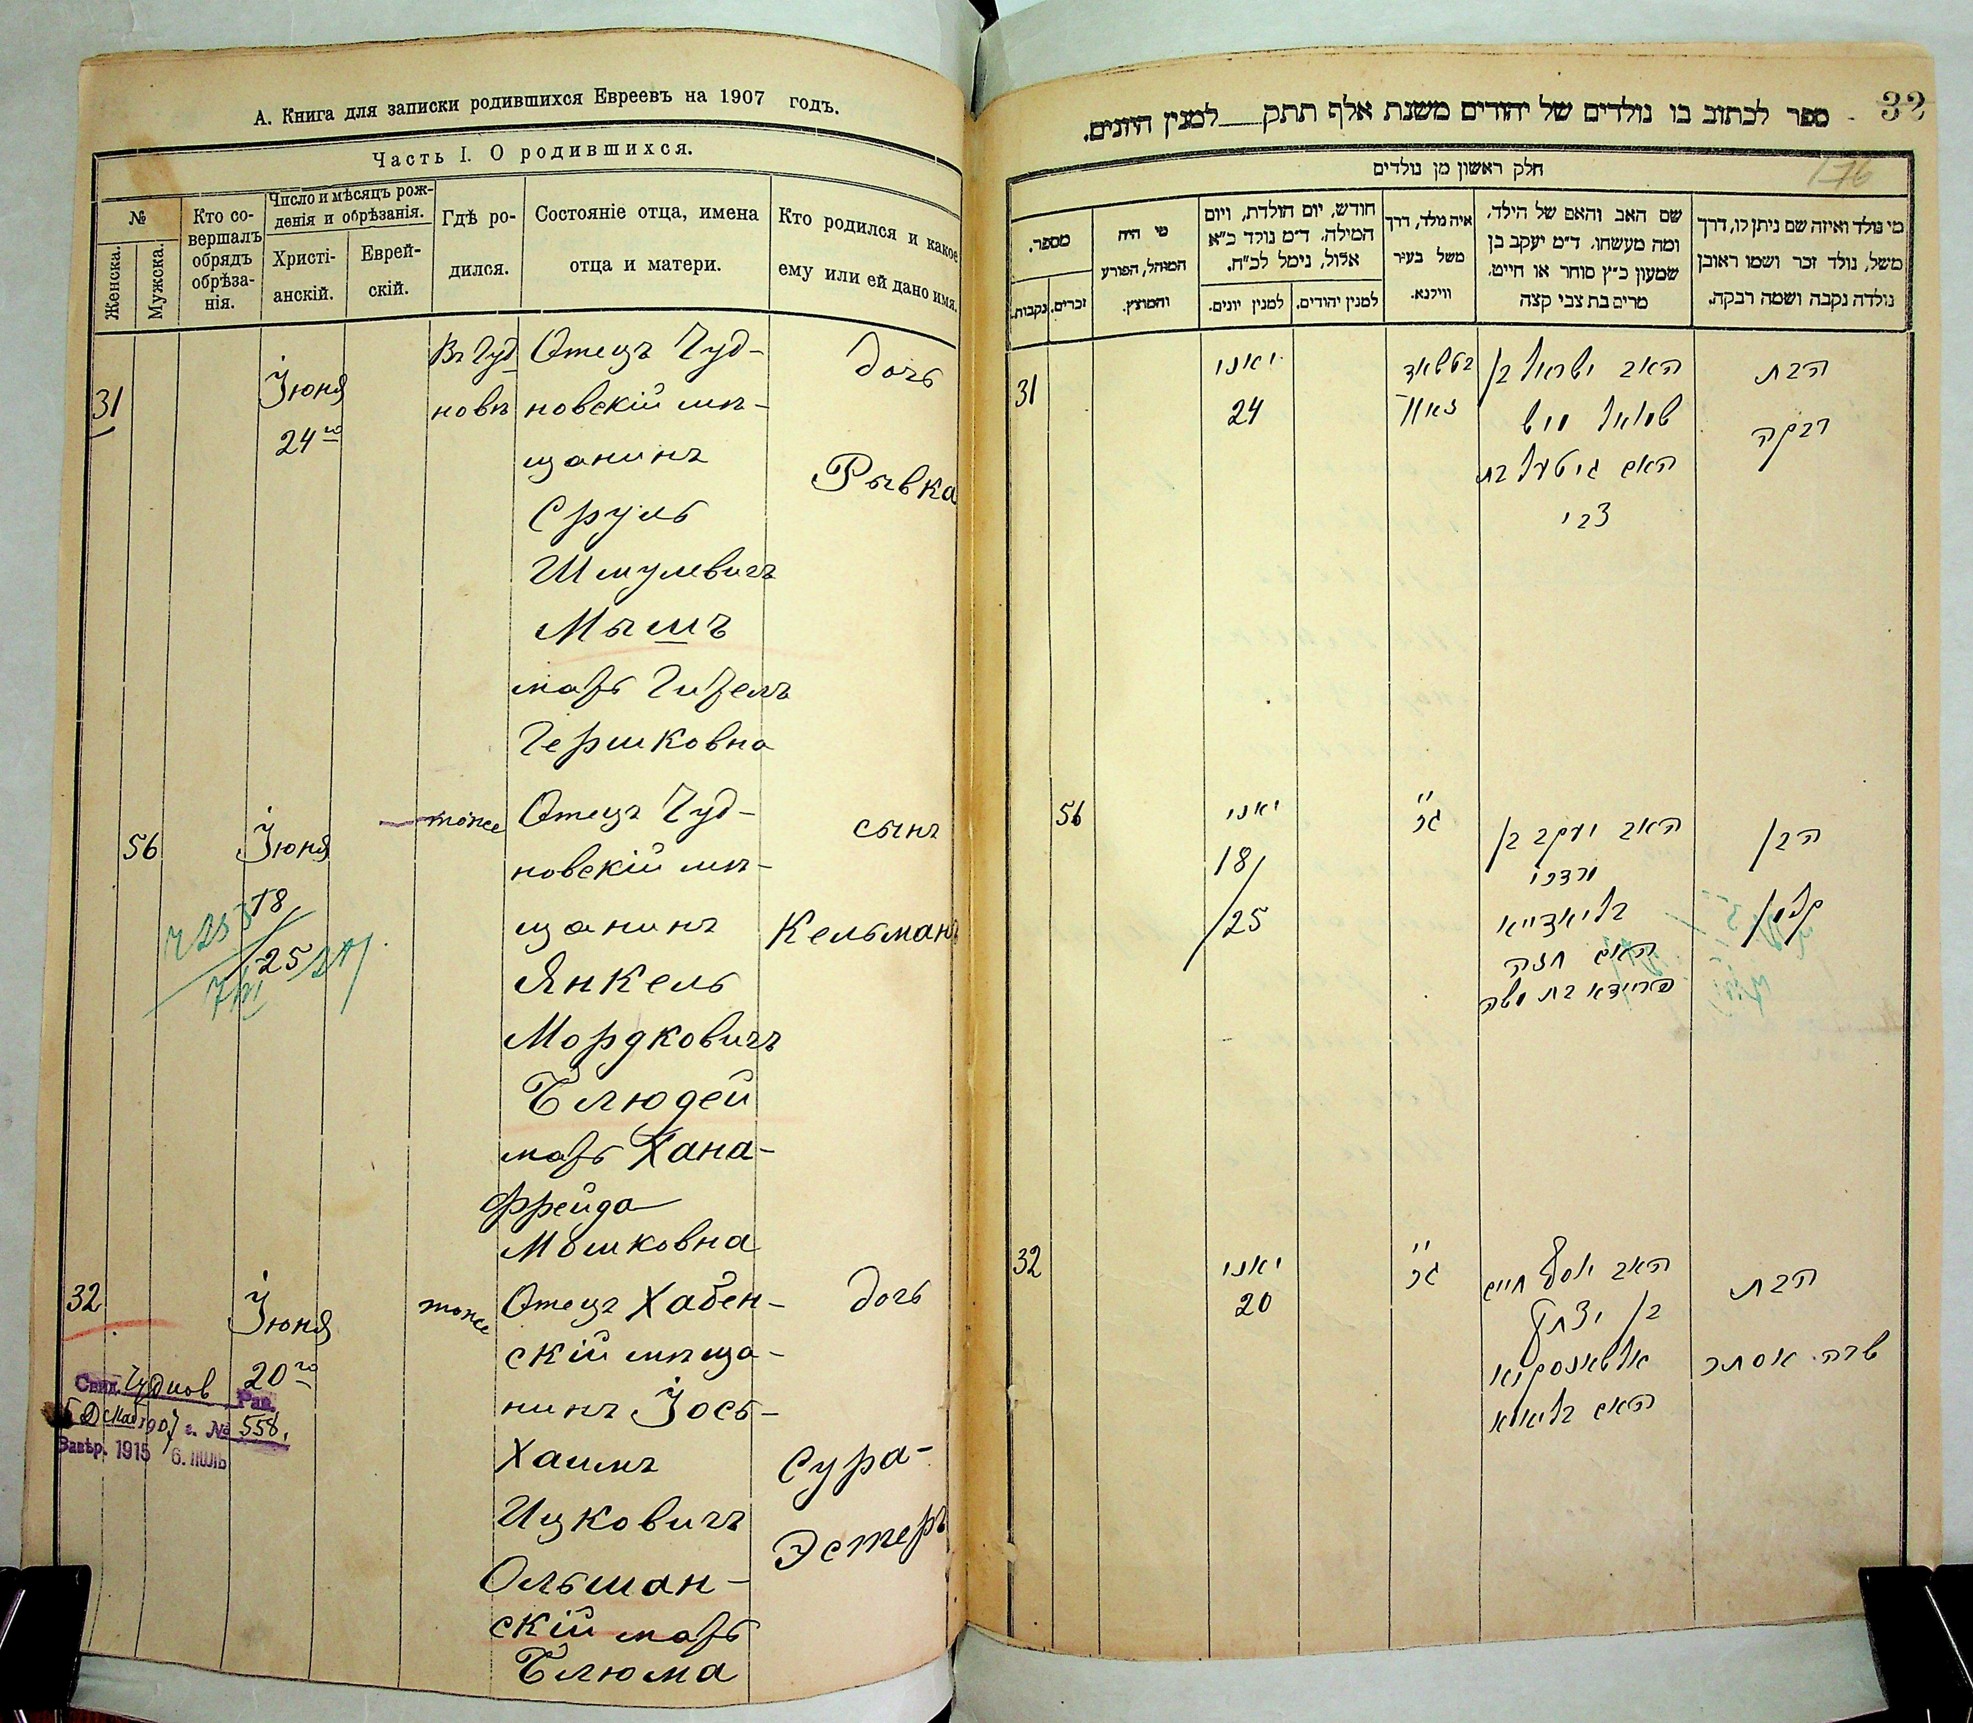 А. Книга для записки родившихся Евреевъ на 1907 годъ.
Часть I. О родившихся.
№
Женска.
Мужска.
Кто со-
вершалъ
обрядъ
обрѣза-
нія.
Число и мѣсяцъ рож-
денія и обрѣзанія.
Христі-
анскій.
Еврей-
скій.
Гдѣ ро-
дился.
Состояніе отца, имена
отца и матери.
Кто родился и какое
ему или ей дано имя.
31
Іюня
24го
Въ Чуд
новѣ
Отецъ Чуд-
новскій мѣ-
щанинъ
Сруль
Шмулевичъ
Мышъ
мать Гителъ
Гершковна
дочь
Рывка
56
Іюня
18/
/25
тоже
Отецъ Чуд-
новскій мѣ-
щанинъ
Янкель
Мордковичъ
Блюдей
мать Хана-
Фрейда
Мошковна
сынъ
Кельманъ
32
Іюня
20го
тоже
Отецъ Хабен-
скій мѣща-
нинъ Іось-
Хаимъ
Ицковичъ
Ольшан-
скій мать
Блюма
дочь
Сура-
Эстеръ
Свид. Чуднов Рав.
1907 г. № 558.
Завѣр. 1915 6. ІЮЛЬ
32
176
ספר לכתוב בו נולדים של יהודים משנת אלף תתק למנין היונים.
חלק ראשון מן נולדים
מי נולד ואיזה שם ניתן לו, דרך
משל, נולד זכר ושמו ראובן
נולדה נקבה ושמה רבקה.
שם האב והאם של הילד,
ומה מעשהו. ד״מ יעקב בן
שמעון כ״ץ סוחר או חייט.
מרים בת צבי קצה
איה נולד, דרך
משל בעיר
ווילנא.
חודש, יום הולדת, ויום
המילה. ד״מ נולד כ״א
אלול, נימל לכ״ח.
למנין יהודים.
למנין יונים.
מי היה
המוהל, הפורע
והמוצץ.
מספר.
זכרים.
נקבות.
הבת
רבקה
האב ישראל בן
שמואל מיש
האם גיטעל בת
צבי
יאני
24
31
הבן
קלמן
האב יעקב בן
מרדכי
בליאדייא
האם חנה
פריידא בת משה
גר
יאני
18/
/25
56
הבת
שרה אסתר
האב יוסף חיים
בן יצחק
אלשאנסקיא
האם בליומא
גר
יאני
20
32